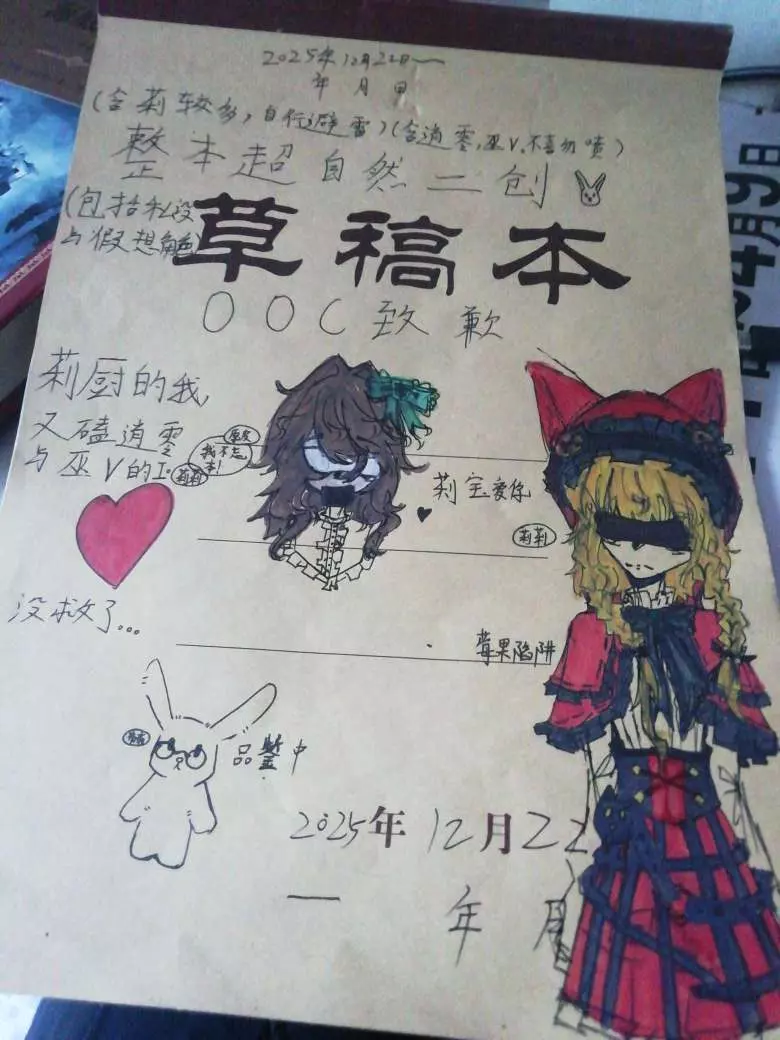 2025年12月22日—
年 月 日
(含莉较多,自行避雷)(含逍零,巫V,不喜勿喷)
整本超自然二创
(包括私设
与假想角色)
草稿本
OOC致歉
莉厨的我,
又磕逍零
与巫V的
我不忘
本!
莉莉
莉宝爱你
莉莉
没救了...
莓果陷阱
品鉴中
2025年12月22
— 年 月
4月9日